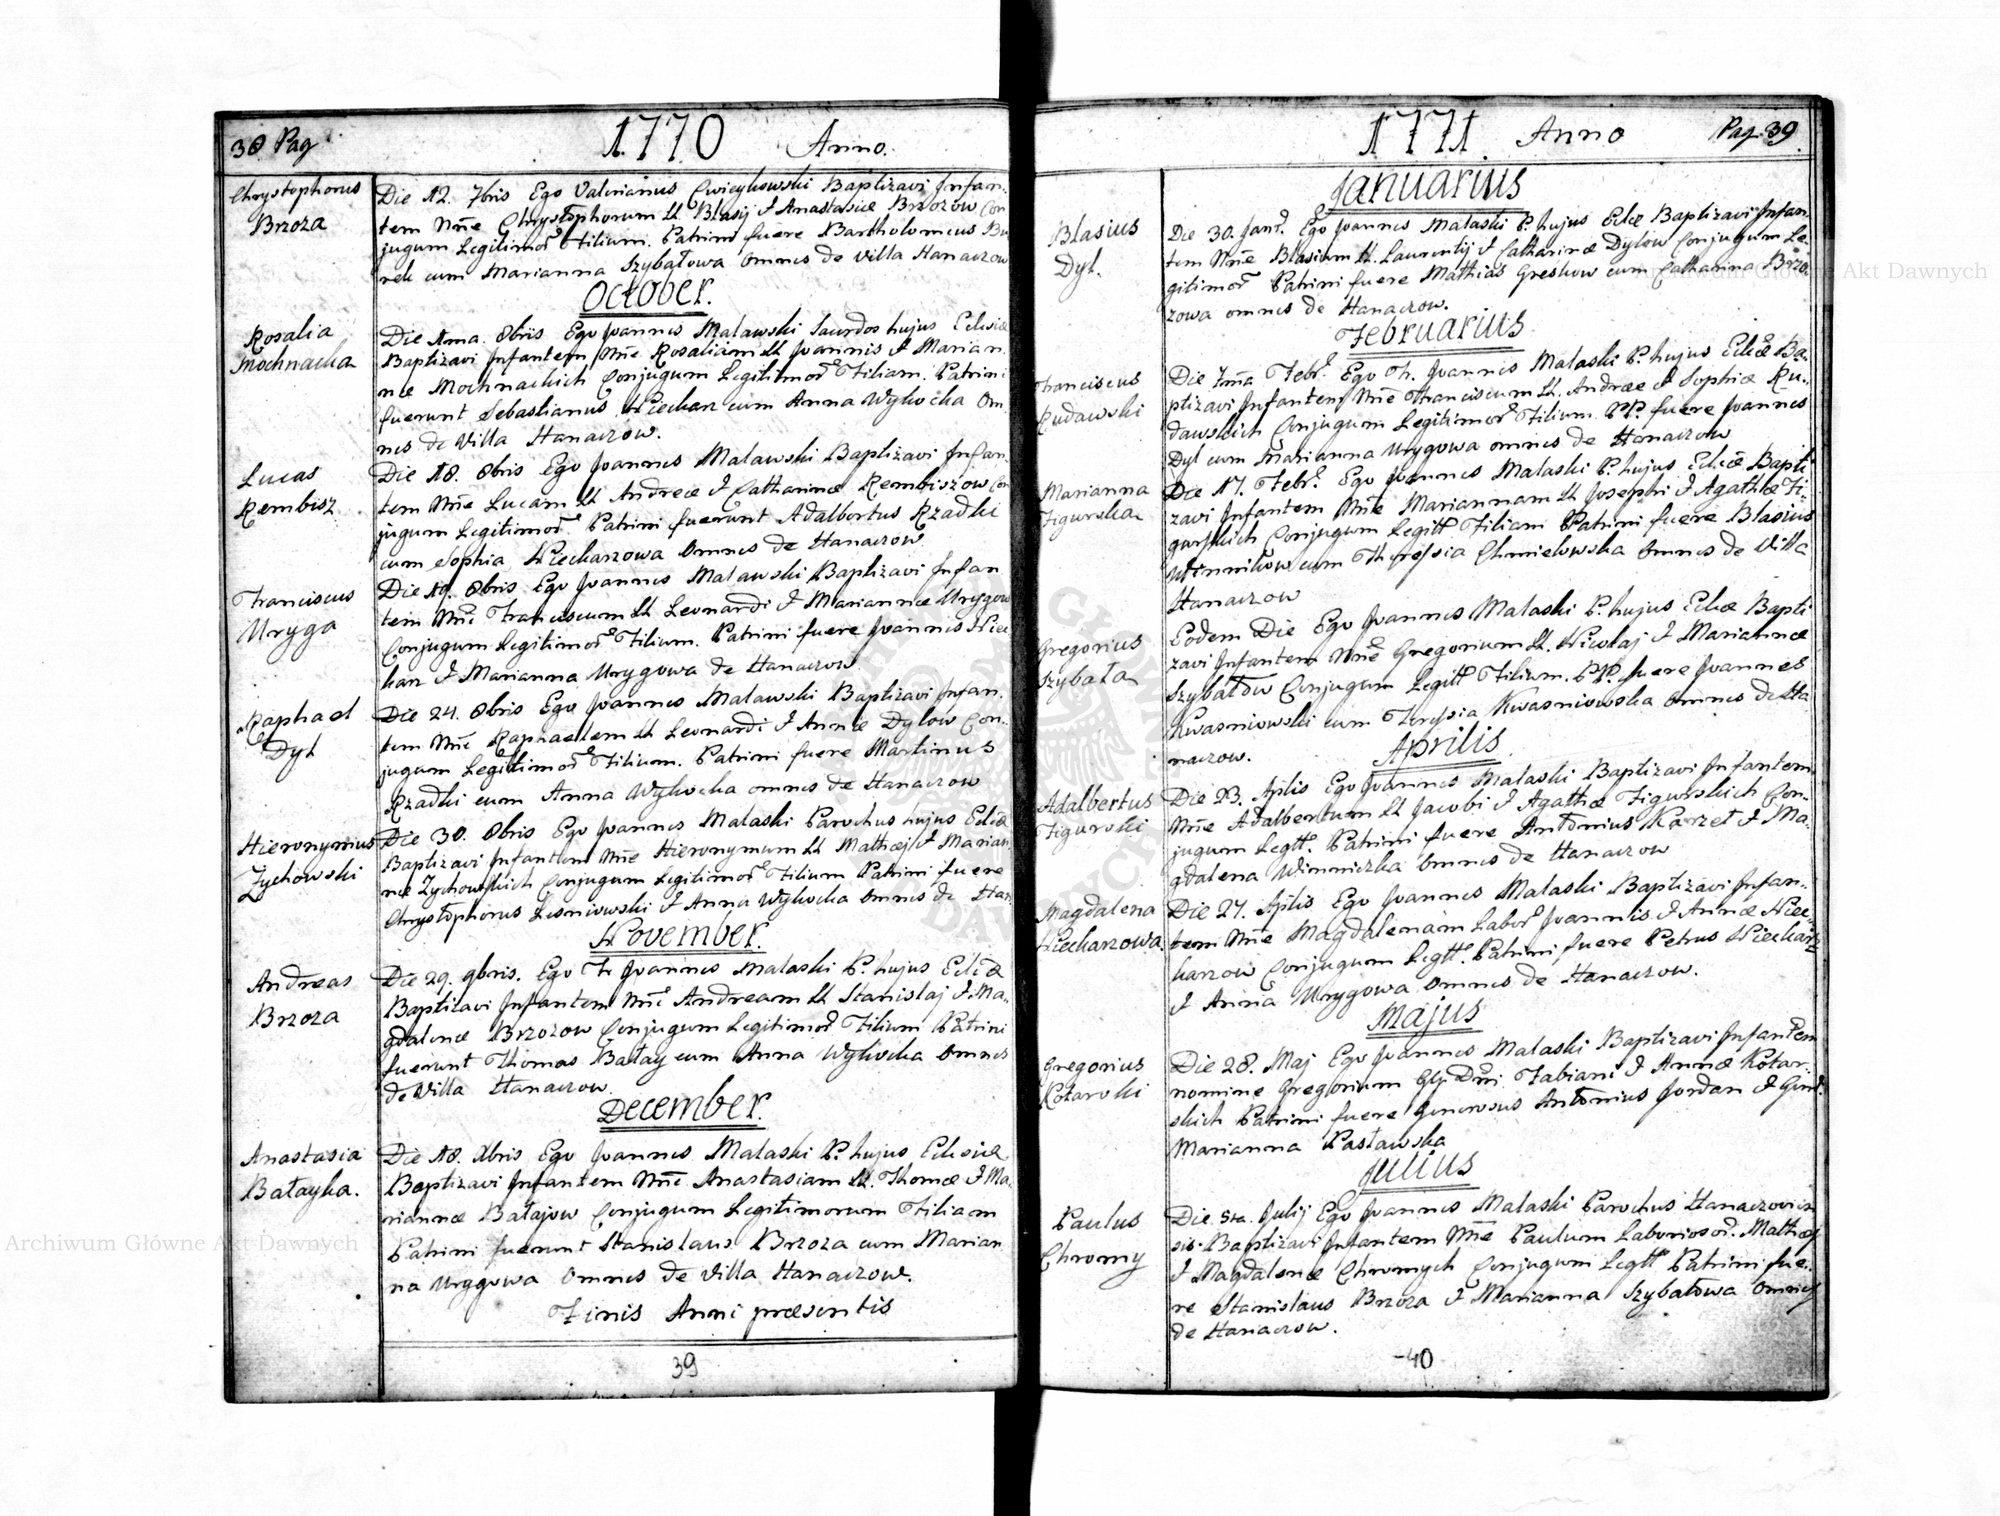 38 Pag
1770 Anno.
Chrystophorus
Brzoza
Die 12. 7bris Ego Valerianus Cwicykowski Baptizavi Infan-
tem Nñe Chrystophorum LL Blasij & Anastasiæ Brzozow Con
jugum Legitimor Filium. Patrini fuere Bartholomeus Bu
rek cum Marianna Szybałowa Omnes de villa Hanaczow
October.
Rosalia
Mochnacka
Die 1ma 8bris Ego Joannes Malawski Sacrdos hujus Eclesiæ
Baptizavi Infantem Nñe Rosaliam LL Joannis & Marian
næ Mochnackich Conjugum Legitimor Filiam. Patrini
fuerunt Sebastianus Niechan cum Anna Wykocka Om
nes de Villa Hanaczow.
Lucas
Rembisz
Die 18. 8bris Ego Joannes Malawski Baptizavi Infan
tem Nñe Lucam LL Andreæ & Catharinæ Rembiszow Con
jugum Legitimor Patrini fuerunt Adalbertus Rzadki
cum Sophia Niecharzowa Omnes de Hanaczow
Franciscus
Uryga
Die 19. 8bris Ego Joannes Malawski Baptizavi Infan
tem Nñe Franciscum LL Leonardi & Mariannæ Urygow
Conjugum Legitimor Filium. Patrini fuere Joannes Niec
harz & Marianna Urygowa de Hanaczow
Raphael
Dyl
Die 24. 8bris Ego Joannes Malawski Baptizavi Infan.
tem Nñe Raphaelem LL Leonardi & Annæ Dylow Con-
jugum Legitimor Filium. Patrini fuere Martinus
Rzadki cum Anna Wykocka omnes de Hanaczow
Hieronymus
Zychowski
Die 30. 8bris Ego Joannes Malaski Parochus hujus Ecliæ
Baptizavi Infantem Nñe Hieronymum LL Mathæj & Marian
næ Zychowskich Conjugum Legitimor Filium Patrini fuere
Chrystophorus Lesniowski & Anna Wykocka Omnes de Han
November.
Andreas
Brzoza
Die 29. 9bris. Ego Fr Joannes Malaski P. hujus Ecliæ
Baptizavi Infantem Nñe Andream LL Stanislaj & Ma-
gdalenæ Brzozow Conjugum Legitimor Filium Patrini
fuerunt Thomas Bałay cum Anna Wykocka Omnes
de Villa Hanaczow.
December.
Anastasia
Bałayka.
Die 18. Xbris Ego Joannes Malaski P. hujus Eclesiæ
Baptizavi Infantem Nñe Anastasiam LL. Thomæ & Ma.
riannæ Bałajow Conjugum Legitimorum Filiam
Patrini fuerunt Stanislaus Brzoza cum Marian
na Urygowa Omnes de Villa Hanaczow.
Finis Anni præsentis
39
1771. Anno Pag. 39.
Januarius
Blasius
Dyl.
Die 30. Jan. Ego Joannes Malaski P. hujus Eclæ Baptizavi Infan
tem Nñe Blasium LL Laurentij & Catharinæ Dylow Conjugum Le-
gitimor Patrini fuere Mathias Greskow cum Catharina Brzo
zowa omnes de Hanaczow.
Februarius
Franciscus
Rudawski
Die 7ma Febr. Ego Fr. Joannes Malaski P. hujus Ecliæ Ba-
ptizavi Infantem Nñe Franciscum LL. Andreæ & Sophiæ Ru-
dawskich Conjugum Legitimor Filium. PP. fuere Joannes
Dyl cum Marianna Urygowa omnes de Hanaczow
Marianna
Figurska
Die 17. Febr. Ego Joannes Malaski P. hujus Ecliæ Bapti
zavi Infantem Nñe Mariannam LL Josephi & Agathæ Fi-
gurskich Conjugum Legitt Filiam Patrini fuere Blasius
Winnikow cum Theressia Chmielowska Omnes de Villa
Hanaczow
Gregorius
Szybała
Eodem Die Ego Joannes Malaski P. hujus Eclæ Bapti
zavi Infantem Nñe Gregorium LL. Nicolaj & Mariannæ
Szybałow Conjugum Legitt Filium. PP. fuere Joannes
Kwasniowski cum Teressia Kwasniowska Omnes de Ha
naczow.
Aprilis
Adalbertus
Figurski
Die 23. Aplis Ego Joannes Malaski Baptizavi Infantem
Nñe Adalbertum LL Jacobi & Agathæ Figurskich Con-
jugum Legtt. Patrini fuere Antonius Karzet & Ma-
gdalena Winniczka Omnes de Hanaczow
Magdalena
Niecharzowa
Die 27. Aplis Ego Joannes Malaski Baptizavi Infan-
tem Nñe Magdalenam Labor Joannis & Annæ Niec-
harzow Conjugum Legtt. Patrini fuere Petrus Niecharz
& Anna Urygowa Omnes de Hanaczow.
Majus
Gregorius
Kotarski
Die 28. Maj Ego Joannes Malaski Baptizavi Infantem
nomine Gregorium Dñi Fabiani & Annæ Kotar-
skich Patrini fuere Generosus Antonius Jordan & Gnd.
Marianna Pasławska
Julius
Paulus
Chromy
Die 5ta. Julij Ego Joannes Malaski Parochus Hanaczovien
sis. Baptizavi Infantem Nñe Paulum Laboriosor. Mathæj
& Magdalenæ Chromych Conjugum Legtt Patrini fue.
re Stanislaus Brzoza & Marianna Szybałowa Omnes
de Hanaczow.
40
Archiwum Główne Akt Dawnych
Archiwum Główne Akt Dawnych